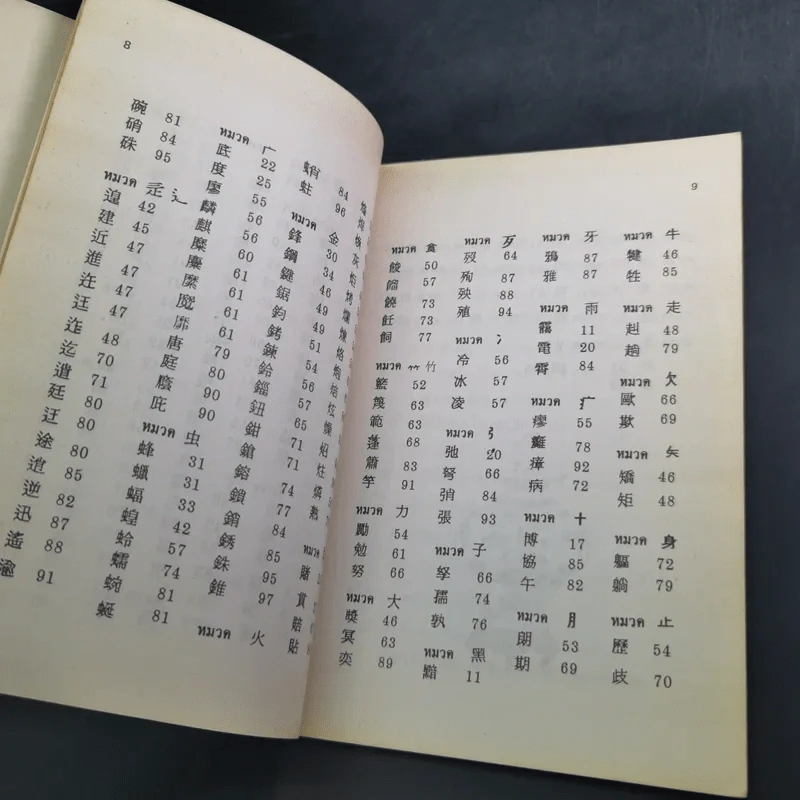 8
碗 81
硝 84
硃 95
หมวด 辵 辶
遑 42
建 45
近 47
進 47
迕 47
迋 47
迮 48
迄 70
遺 71
廷 80
迂 80
途 80
逍 85
逆 82
迅 87
遙 88
逾 91
หมวด 广
底 22
度 25
廖 55
麟 56
麒 56
糜 60
麋 61
縻 61
魔 61
靡 61
唐 79
庭 80
廕 90
庇 90
หมวด 虫
蜂 31
蠟 31
蝠 33
蝗 42
蛤 57
蠕 74
蜿 81
蜓 81
蛸 84
蛀 96
หมวด 金
鋒 30
鋼 34
鍵 46
鋸 49
鈞 49
銬 51
鍊 54
鈴 56
鎦 56
鈕 65
鉗 71
鎗 74
鎔 74
鎖 77
銷 84
銹 85
銖 95
錐 97
หมวด 火
灰
熟
หมวด
賭
賞
賠
貼
9
หมวด 食
餃 50
蹄 57
饒 73
飪 73
飼 77
หมวด ⺮ 竹
籃 52
篾 63
範 63
蓬 68
簫 83
竽 91
หมวด 力
勵 54
勉 61
努 66
หมวด 大
獎 46
冥 63
奕 89
หมวด 歹
歿 64
殉 87
殃 88
殖 94
หมวด 冫
冷 56
冰 57
凌 57
หมวด 弓
弛 20
弩 66
弰 84
張 93
หมวด 子
孥 66
孺 74
孰 76
หมวด 黑
黯 11
หมวด 牙
鴉 87
雅 87
หมวด 雨
靄 11
電 20
霄 84
หมวด 疒
瘳 55
癰 78
瘴 92
病 72
หมวด 十
博 17
協 85
午 82
หมวด 月
朗 53
期 69
หมวด 牛
犍 46
牲 85
หมวด 走
赳 48
趟 79
หมวด 欠
歐 66
欺 69
หมวด 矢
矯 46
矩 48
หมวด 身
軀 72
躺 79
หมวด 止
歷 54
歧 70